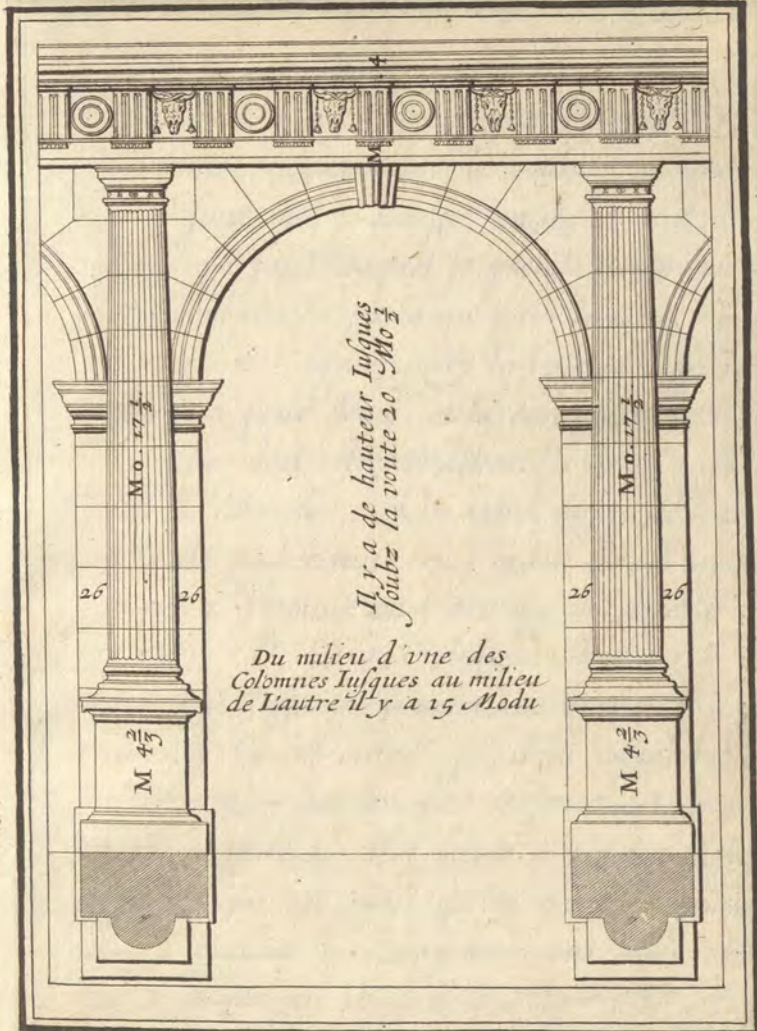 4
M
Mo. 17 1/2
Mo. 17 1/2
Il y a de hauteur Iuſques
ſoubz la voute 20 Mo 1/2
26
26
26
26
Du milieu d'vne des
Colomnes Iuſques au milieu
de L'autre il y a 15 Modu
M 4 2/3
M 4 2/3